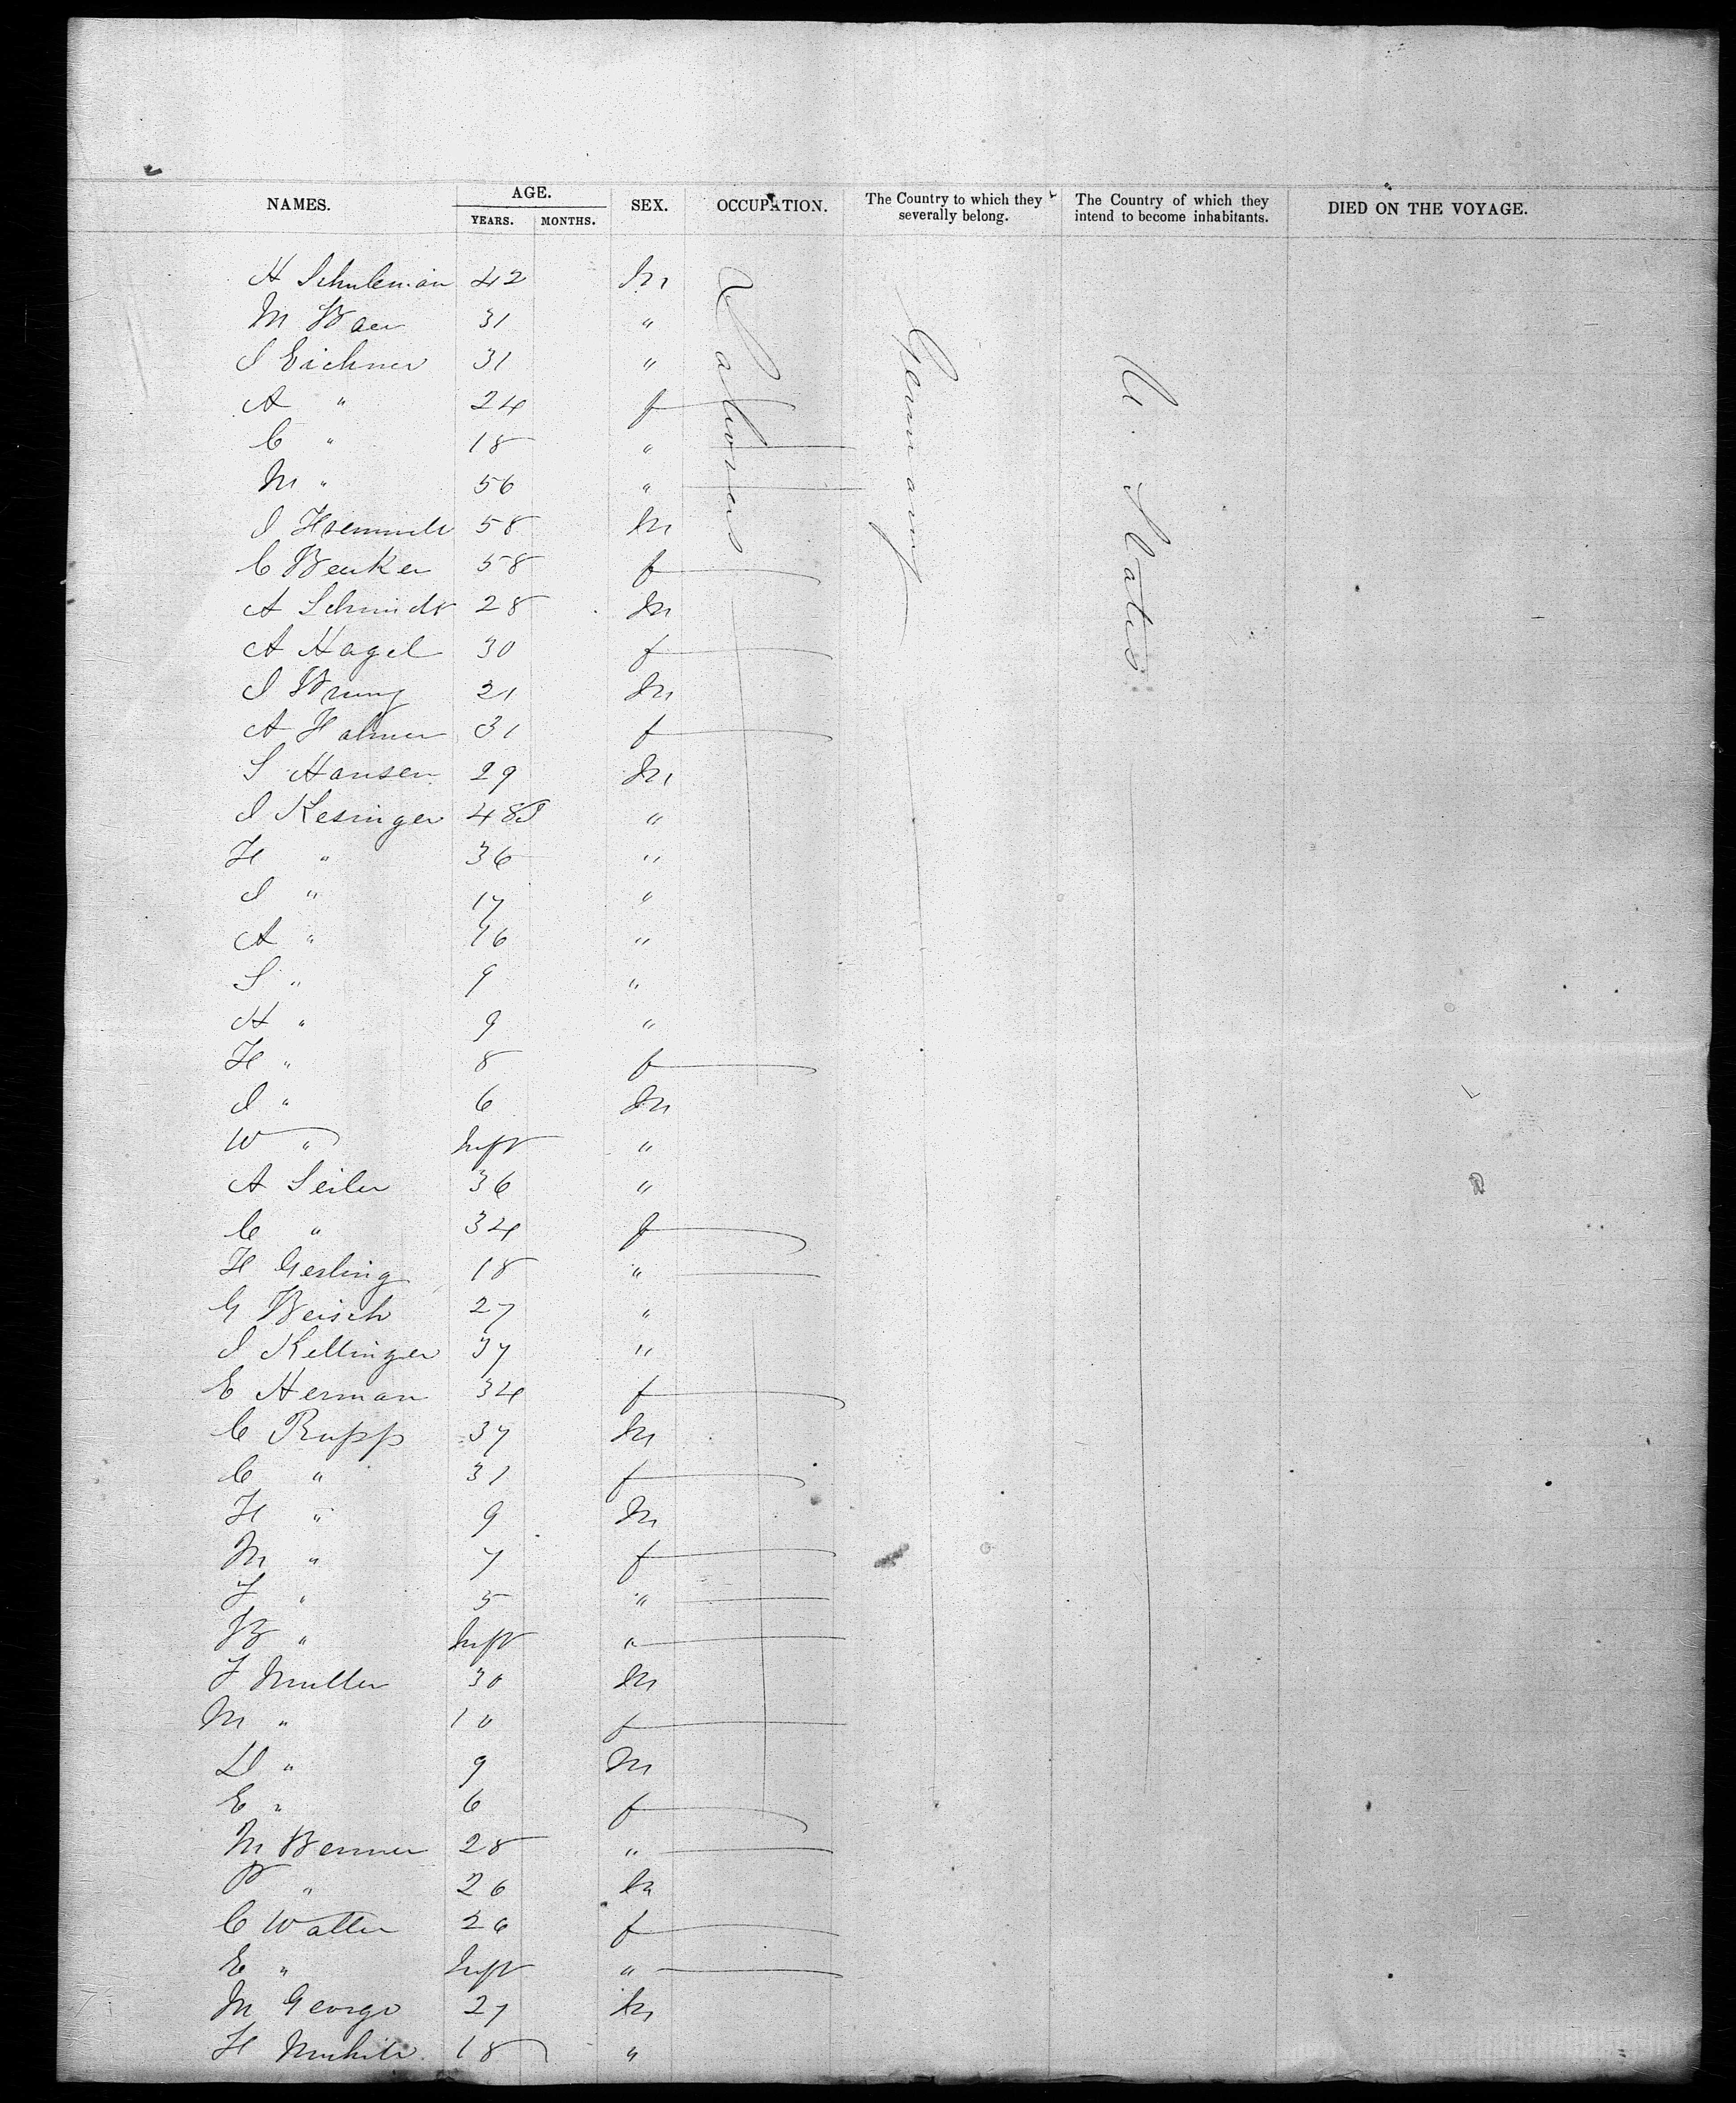 NAMES. AGE. SEX. OCCUPATION. The Country to which they severally belong. The Country of which they intend to become inhabitants. DIED ON THE VOYAGE.
YEARS. MONTHS.
Laborers
Germany
U. States
H Schuleman 42 m
M Baer 31 "
J Eichner 31 "
A " 24 f
C " 18 "
M " 56 "
J 58 m
C Benker 58 f
A Schmidt 28 m
A Hagel 30 f
J 21 m
A 31 f
S Hansen 29 m
J Kesinger 48 "
F " 36 "
J " 17 "
A " 16 "
S " 9 "
H " 9 "
F " 8 f
J " 6 m
W " Inft "
A Seiler 36 "
C " 34 f
F Gerling 18 "
G Beisch 27 "
J Kellinger 37 "
E Herman 34 f
C Rupp 37 m
C " 31 f
F " 9 m
M " 7 f
J " 5 "
B " Inft "
J Muller 30 m
M " 10 f
D " 9 m
E " 6 f
M Benner 28 "
P " 26 m
C Walter 26 f
E " Inft "
M George 27 m
F 18 "